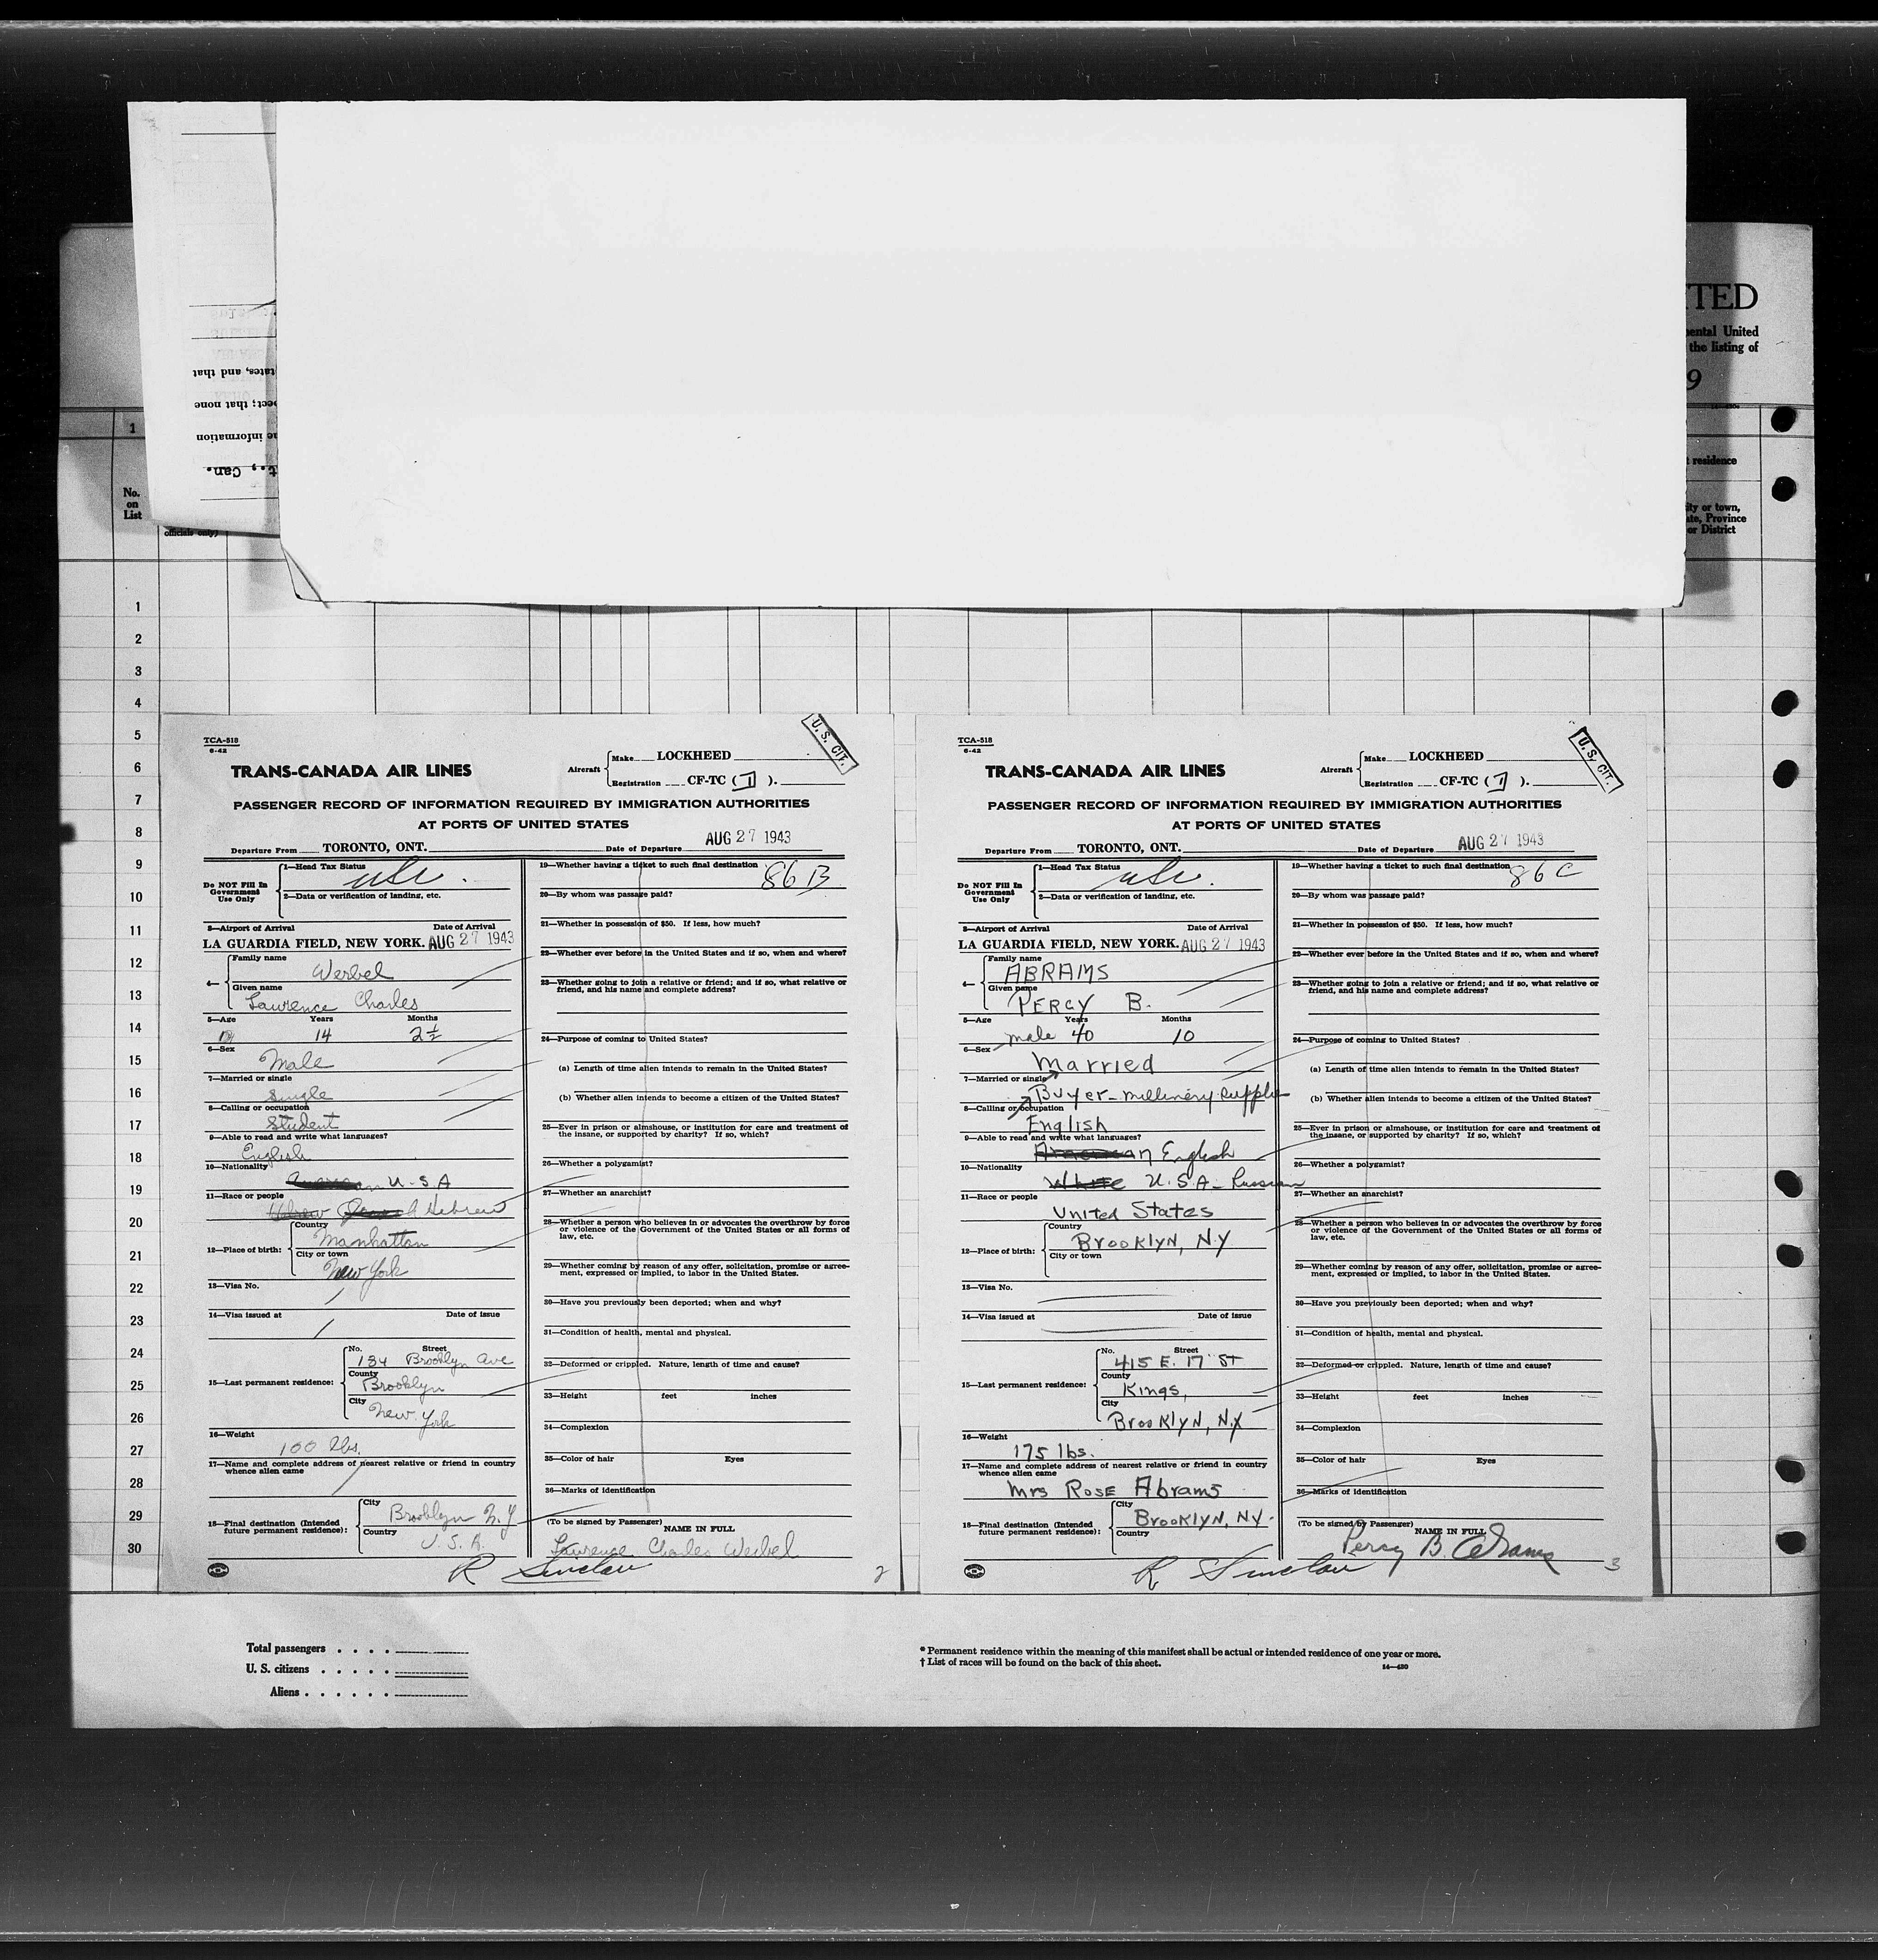 TED
mental United
the listing of
9
tates, and that
pect; that none
he information
t., Can.
1
t residence
No.
on
List
officials only)
city or town,
ate, Province
or District
1
2
3
4
5
6
7
8
9
10
11
12
13
14
15
16
17
18
19
20
21
22
23
24
25
26
27
28
29
30
TCA-518
6-42
U. S. CIT.
TRANS-CANADA AIR LINES
Aircraft
Make LOCKHEED
Registration CF-TC ( T ).
PASSENGER RECORD OF INFORMATION REQUIRED BY IMMIGRATION AUTHORITIES
AT PORTS OF UNITED STATES
Departure From TORONTO, ONT. Date of Departure AUG 27 1943
Do NOT Fill In
Government
Use Only
1—Head Tax Status
usc.
2—Data or verification of landing, etc.
3—Airport of Arrival Date of Arrival
LA GUARDIA FIELD, NEW YORK. AUG 27 1943
4—
Family name
Werbel
Given name
Lawrence Charles
5—Age Years Months
14 2½
6—Sex
Male
7—Married or single
Single
8—Calling or occupation
Student
9—Able to read and write what languages?
English
10—Nationality
U.S.A
11—Race or people
Hebrew
12—Place of birth:
Country
Manhattan
City or town
New York
13—Visa No.
14—Visa issued at Date of issue
15—Last permanent residence:
No. Street
134 Brooklyn Ave
County
Brooklyn
City
New York
16—Weight
100 lbs.
17—Name and complete address of nearest relative or friend in country
whence alien came
18—Final destination (Intended
future permanent residence):
City
Brooklyn N.Y
Country
U.S.A.
19—Whether having a ticket to such final destination 86 B
20—By whom was passage paid?
21—Whether in possession of $50. If less, how much?
22—Whether ever before in the United States and if so, when and where?
23—Whether going to join a relative or friend; and if so, what relative or
friend, and his name and complete address?
24—Purpose of coming to United States?
(a) Length of time alien intends to remain in the United States?
(b) Whether alien intends to become a citizen of the United States?
25—Ever in prison or almshouse, or institution for care and treatment of
the insane, or supported by charity? If so, which?
26—Whether a polygamist?
27—Whether an anarchist?
28—Whether a person who believes in or advocates the overthrow by force
or violence of the Government of the United States or all forms of
law, etc.
29—Whether coming by reason of any offer, solicitation, promise or agree-
ment, expressed or implied, to labor in the United States.
30—Have you previously been deported; when and why?
31—Condition of health, mental and physical.
32—Deformed or crippled. Nature, length of time and cause?
33—Height feet inches
34—Complexion
35—Color of hair Eyes
36—Marks of identification
(To be signed by Passenger)
NAME IN FULL
Lawrence Charles Werbel
R Sinclair
2
TCA-518
6-42
U. S. CIT.
TRANS-CANADA AIR LINES
Aircraft
Make LOCKHEED
Registration CF-TC ( T ).
PASSENGER RECORD OF INFORMATION REQUIRED BY IMMIGRATION AUTHORITIES
AT PORTS OF UNITED STATES
Departure From TORONTO, ONT. Date of Departure AUG 27 1943
Do NOT Fill In
Government
Use Only
1—Head Tax Status
usc.
2—Data or verification of landing, etc.
3—Airport of Arrival Date of Arrival
LA GUARDIA FIELD, NEW YORK. AUG 27 1943
4—
Family name
ABRAMS
Given name
PERCY B.
5—Age Years Months
male 40 10
6—Sex
Married
7—Married or single
Buyer - millinery supplies
8—Calling or occupation
English
9—Able to read and write what languages?
American English
10—Nationality
White U.S.A - Russian
11—Race or people
United States
12—Place of birth:
Country
Brooklyn, N.Y
City or town
13—Visa No.
14—Visa issued at Date of issue
15—Last permanent residence:
No. Street
415 E. 17 ST
County
Kings,
City
Brooklyn, N.Y
16—Weight
175 lbs.
17—Name and complete address of nearest relative or friend in country
whence alien came
Mrs Rose Abrams
18—Final destination (Intended
future permanent residence):
City
Brooklyn, NY.
Country
19—Whether having a ticket to such final destination 86 C
20—By whom was passage paid?
21—Whether in possession of $50. If less, how much?
22—Whether ever before in the United States and if so, when and where?
23—Whether going to join a relative or friend; and if so, what relative or
friend, and his name and complete address?
24—Purpose of coming to United States?
(a) Length of time alien intends to remain in the United States?
(b) Whether alien intends to become a citizen of the United States?
25—Ever in prison or almshouse, or institution for care and treatment of
the insane, or supported by charity? If so, which?
26—Whether a polygamist?
27—Whether an anarchist?
28—Whether a person who believes in or advocates the overthrow by force
or violence of the Government of the United States or all forms of
law, etc.
29—Whether coming by reason of any offer, solicitation, promise or agree-
ment, expressed or implied, to labor in the United States.
30—Have you previously been deported; when and why?
31—Condition of health, mental and physical.
32—Deformed or crippled. Nature, length of time and cause?
33—Height feet inches
34—Complexion
35—Color of hair Eyes
36—Marks of identification
(To be signed by Passenger)
NAME IN FULL
Percy B. Abrams
R Sinclair
3
Total passengers
U. S. citizens
Aliens
* Permanent residence within the meaning of this manifest shall be actual or intended residence of one year or more.
† List of races will be found on the back of this sheet.
14—480